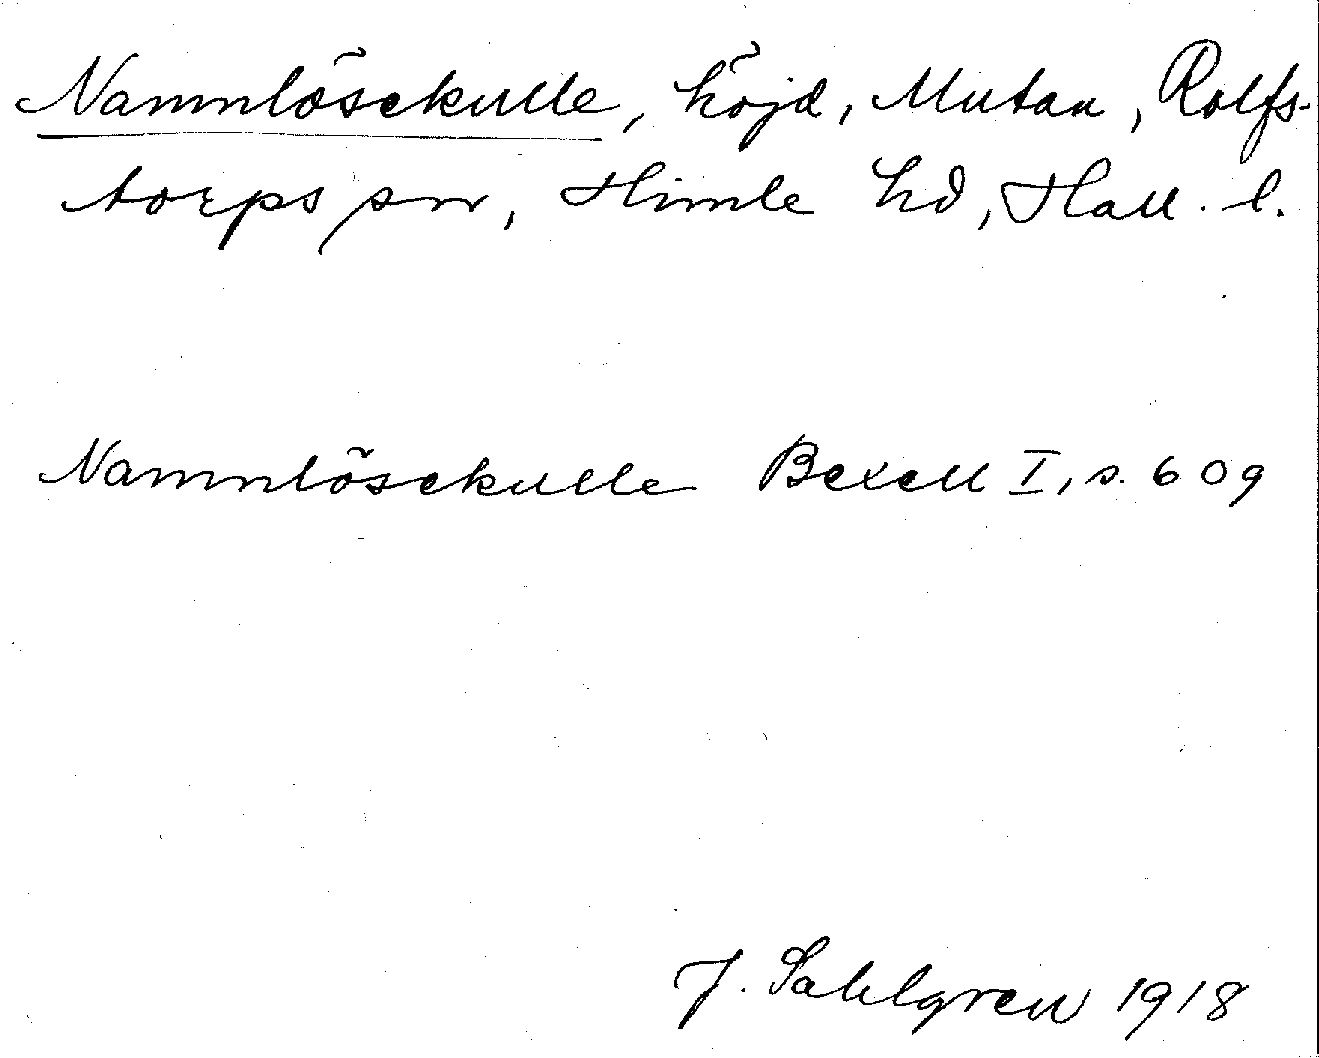 Namnlösekulle, höjd, Mutan, Rolfs-
torps sn, Himle hd, Hall. l.
Namnlösekulle Bexell I, s. 609
J. Sahlgren 1918